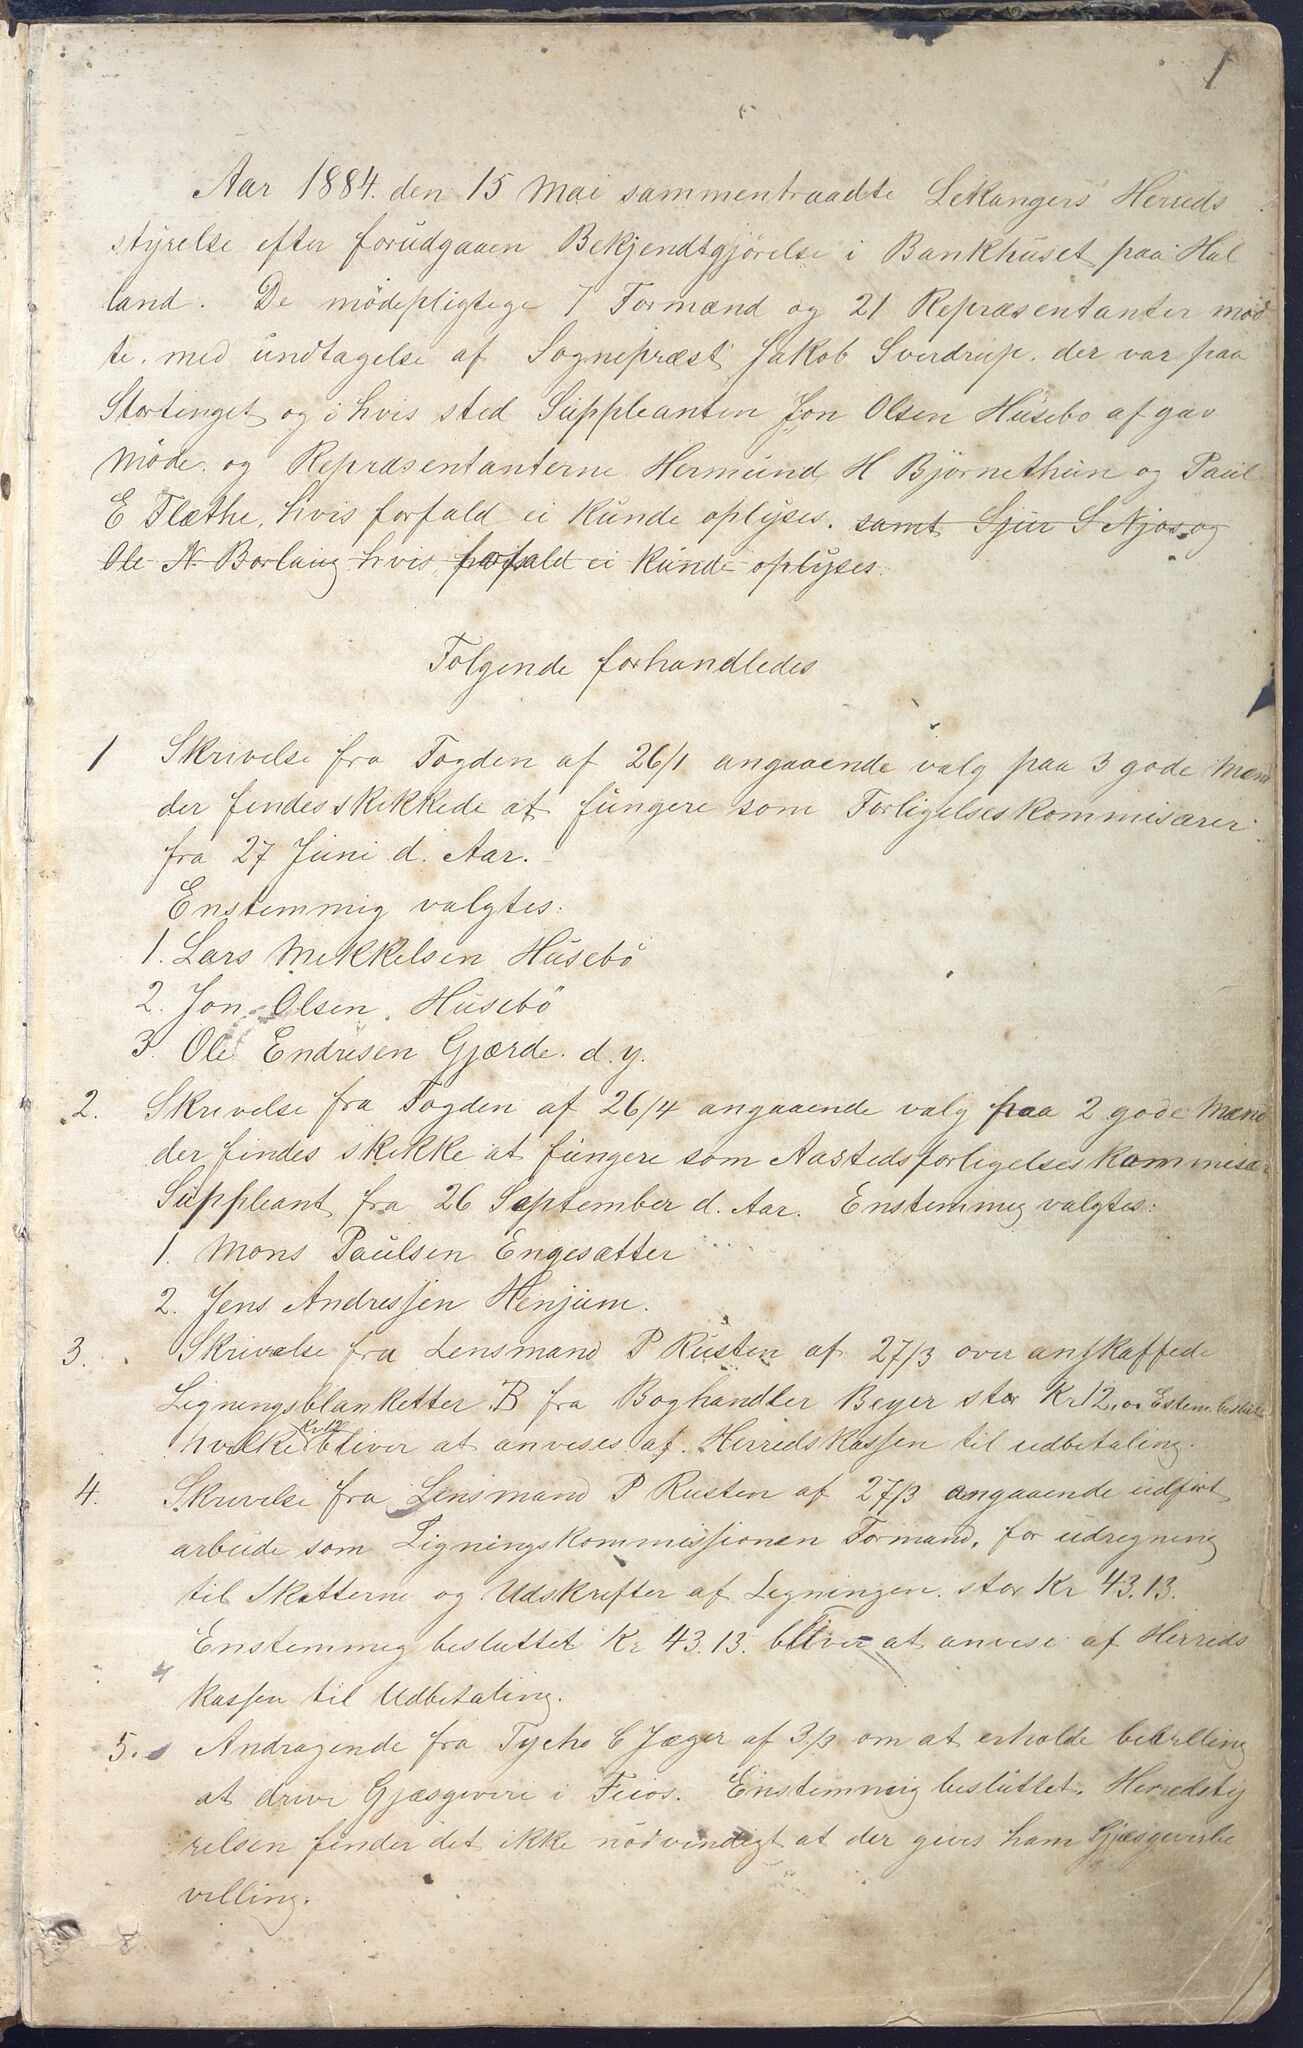 1
Aar 1884. den 15 Mai sammentraadte Lekangers Herreds
styrelse efter forudgaaen Bekjendtgjörelse i Bankhuset paa Hal
land. De mödepligtege 7 Formænd og 21 Repræsentanter möd
te. med undtagelse af Sognepræst Jakob Sverdrup. der var paa
Stortinget og i hvis sted Suppleanten Jon Olsen Husebø afgav
Möde. og Repræsentanterne Hermund H Björnethun og Paul
E Flæthe, hvis forfald ei kunde oplyses. samt Sjur S Njøs og
Ole N. Borlaug hvis forfald ei kunde oplyses.
Følgende forhandledes
1 Skrivelse fra Fogden af 26/1 angaaende valg paa 3 gode Mænd
der findes skikkede at fungere som Forligelseskommisærer
fra 27 Juni d. Aar.
Enstemmig valgtes:
1. Lars Mikkelsen Husebö
2. Jon Olsen. Husebö
3. Ole Endresen Gjærde. d. y.
2. Skrivelse fra Fogden af 26/4 angaaende valg paa 2 gode Mænd
der findes skikke at fungere som Aastedsforligelseskommisær
Suppleant fra 26 September d. Aar. Enstemmig valgtes:
1. Mons Paulsen Engesætter
2. Jens Andressen Henjum.
3. Skrivelse fra Lensmand P Rusten af 27/3 over anskaffede
Ligningsblanketter B fra Boghandler Beyer stor Kr 12,00 Estem. beslut
hvilke Kr 12 bliver at anvises af Herredskassen til udbetaling.
4. Skrivelse fra Lensmand P Rusten af 27/3 angaaende udført
arbeide som Ligningskommissionen Formand, for udregning
til Skatterne og Udskrifter af Ligningen. stor Kr 43.13.
Enstemmig besluttet Kr 43.13. bliver at anvise af Herreds
kassen til Udbetaling.
5. Andragende fra Tycho C Jæger af 3/3 om at erholde bevilling
at drive Gjæsgiveri i Feios. Enstemmig besluttet. Herredsty
relsen finder det ikke nödvendigt at der gives ham Gjæsgiverbe
villing.